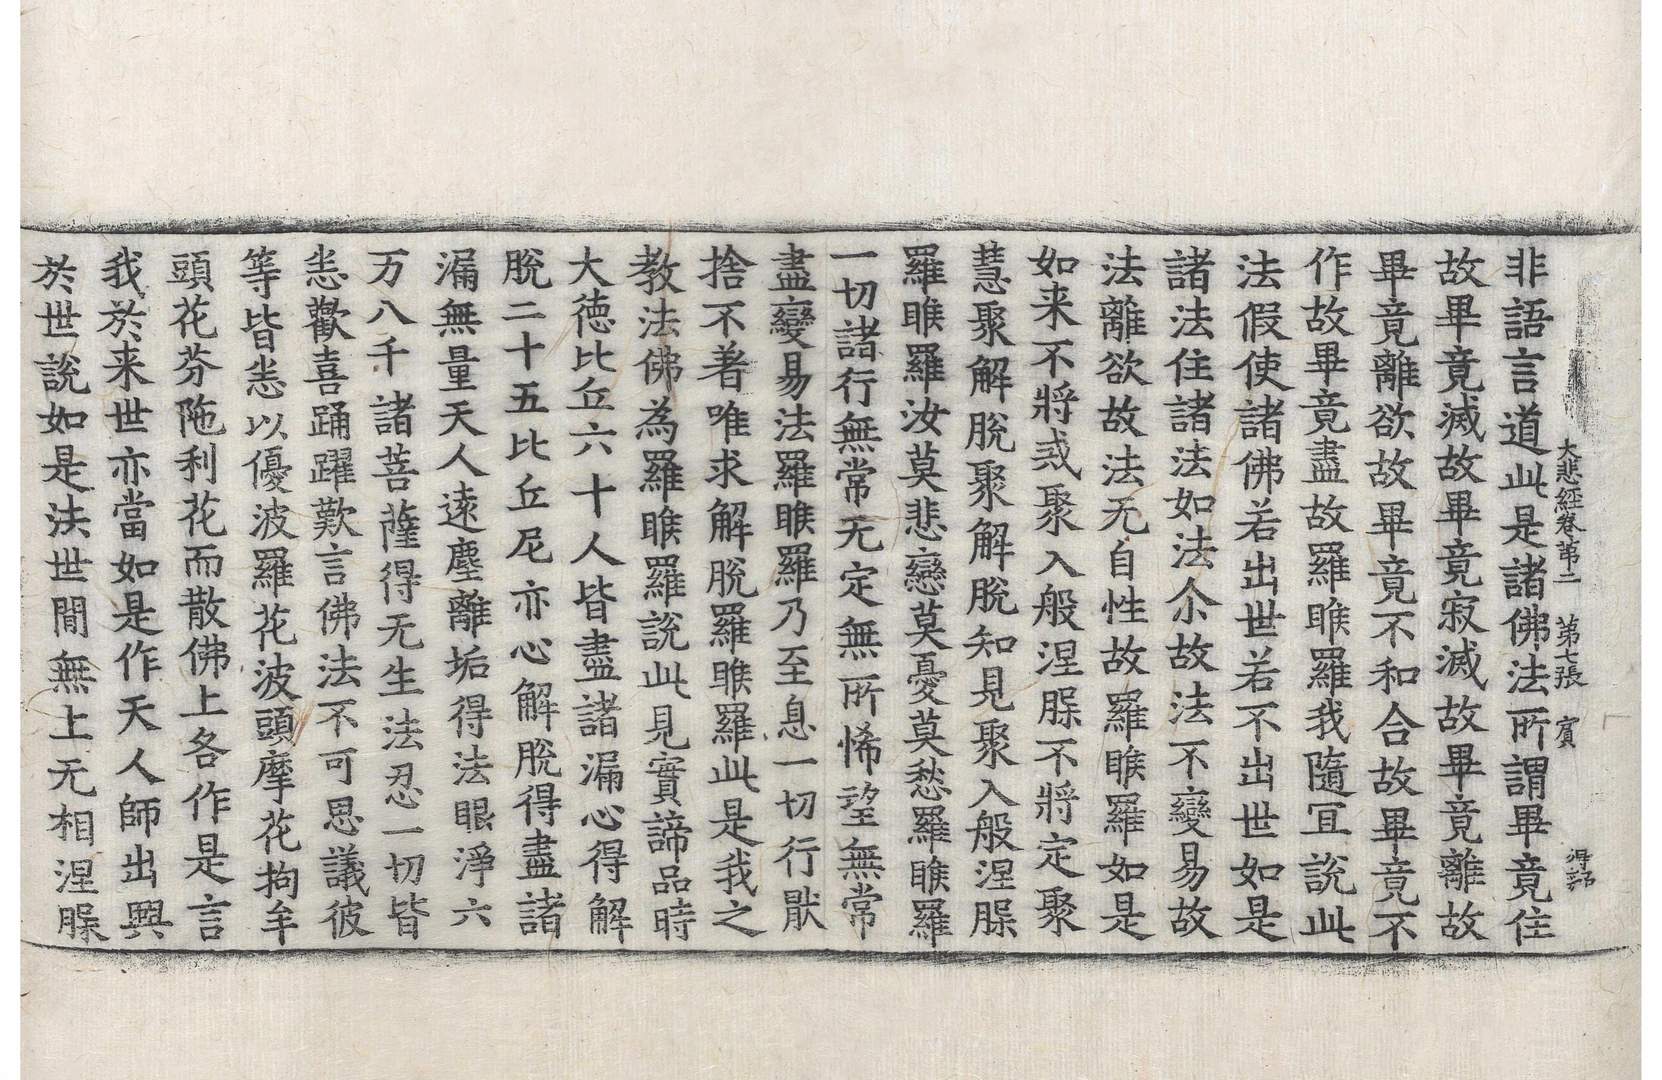 大悲經卷第二 第七張 賓
非語言道此是諸佛法所謂畢竟住
故畢竟滅故畢竟寂滅故畢竟離故
畢竟離欲故畢竟不和合故畢竟不
作故畢竟盡故羅睺羅我隨宜說此
法假使諸佛若出世若不出世如是
諸法住諸法如法尒故法不變易故
法離欲故法无自性故羅睺羅如是
如来不將戒聚入般涅槃不將定聚
慧聚解脫聚解脫知見聚入般涅槃
羅睺羅汝莫悲戀莫憂莫愁羅睺羅
一切諸行無常无定無所悕望無常
盡變易法羅睺羅乃至息一切行猒
捨不著唯求解脫羅睺羅此是我之
教法佛為羅睺羅說此見實諦品時
大德比丘六十人皆盡諸漏心得解
脫二十五比丘尼亦心解脫得盡諸
漏無量天人遠塵離垢得法眼淨六
万八千諸菩薩得无生法忍一切皆
悉歡喜踊躍歎言佛法不可思議彼
等皆悉以優波羅花波頭摩花拘牟
頭花芬陁利花而散佛上各作是言
我於来世亦當如是作天人師出興
於世說如是法世間無上无相涅槃